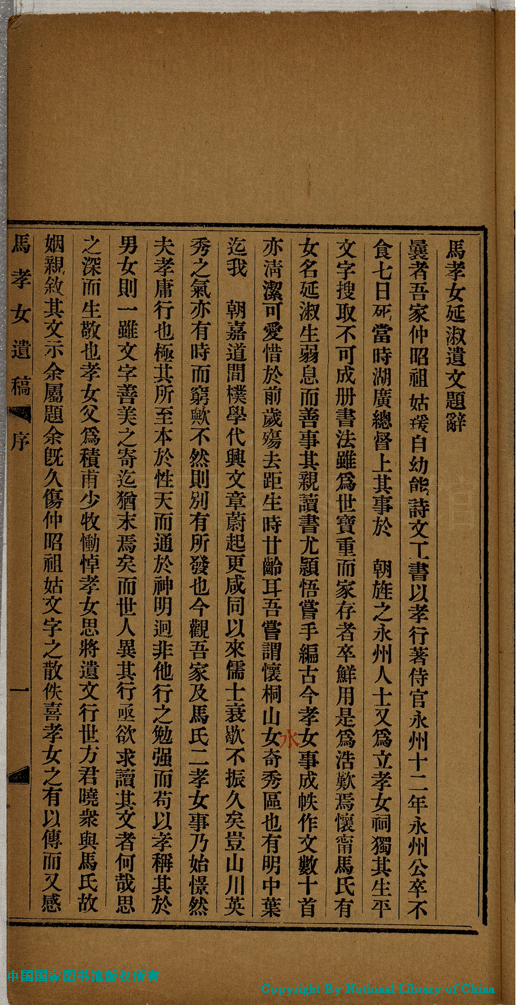 馬孝女延淑遺文題辭
曩者吾家仲昭祖姑瑗自幼能詩文工書以孝行著侍官永州十二年永州公卒不
食七日死當時湖廣總督上其事於　朝旌之永州人士又爲立孝女祠獨其生平
文字搜取不可成册書法雖爲世寶重而家存者卒鮮用是爲浩歎焉懷甯馬氏有
女名延淑生弱息而善事其親讀書尤穎悟嘗手編古今孝女事成帙作文數十首
亦淸潔可愛惜於前歲殤去距生時廿齡耳吾嘗謂懷桐山女奇秀區也有明中葉
水
迄我　朝嘉道間樸學代興文章蔚起更咸同以來儒士衰歇不振久矣豈山川英
秀之氣亦有時而窮歟不然則別有所發也今觀吾家及馬氏二孝女事乃始憬然
夫孝庸行也極其所至本於性天而通於神明迥非他行之勉强而苟以孝稱其於
男女則一雖文字善美之寄迄猶末焉矣而世人異其行亟欲求讀其文者何哉思
之深而生敬也孝女父爲積甫少牧慟悼孝女思將遺文行世方君曉衆與馬氏故
姻親敘其文示余屬題余旣久傷仲昭祖姑文字之散佚喜孝女之有以傳而又感
馬孝女遺稿　序　一
中国国家图书馆版权所有
Copyright By National Library of China